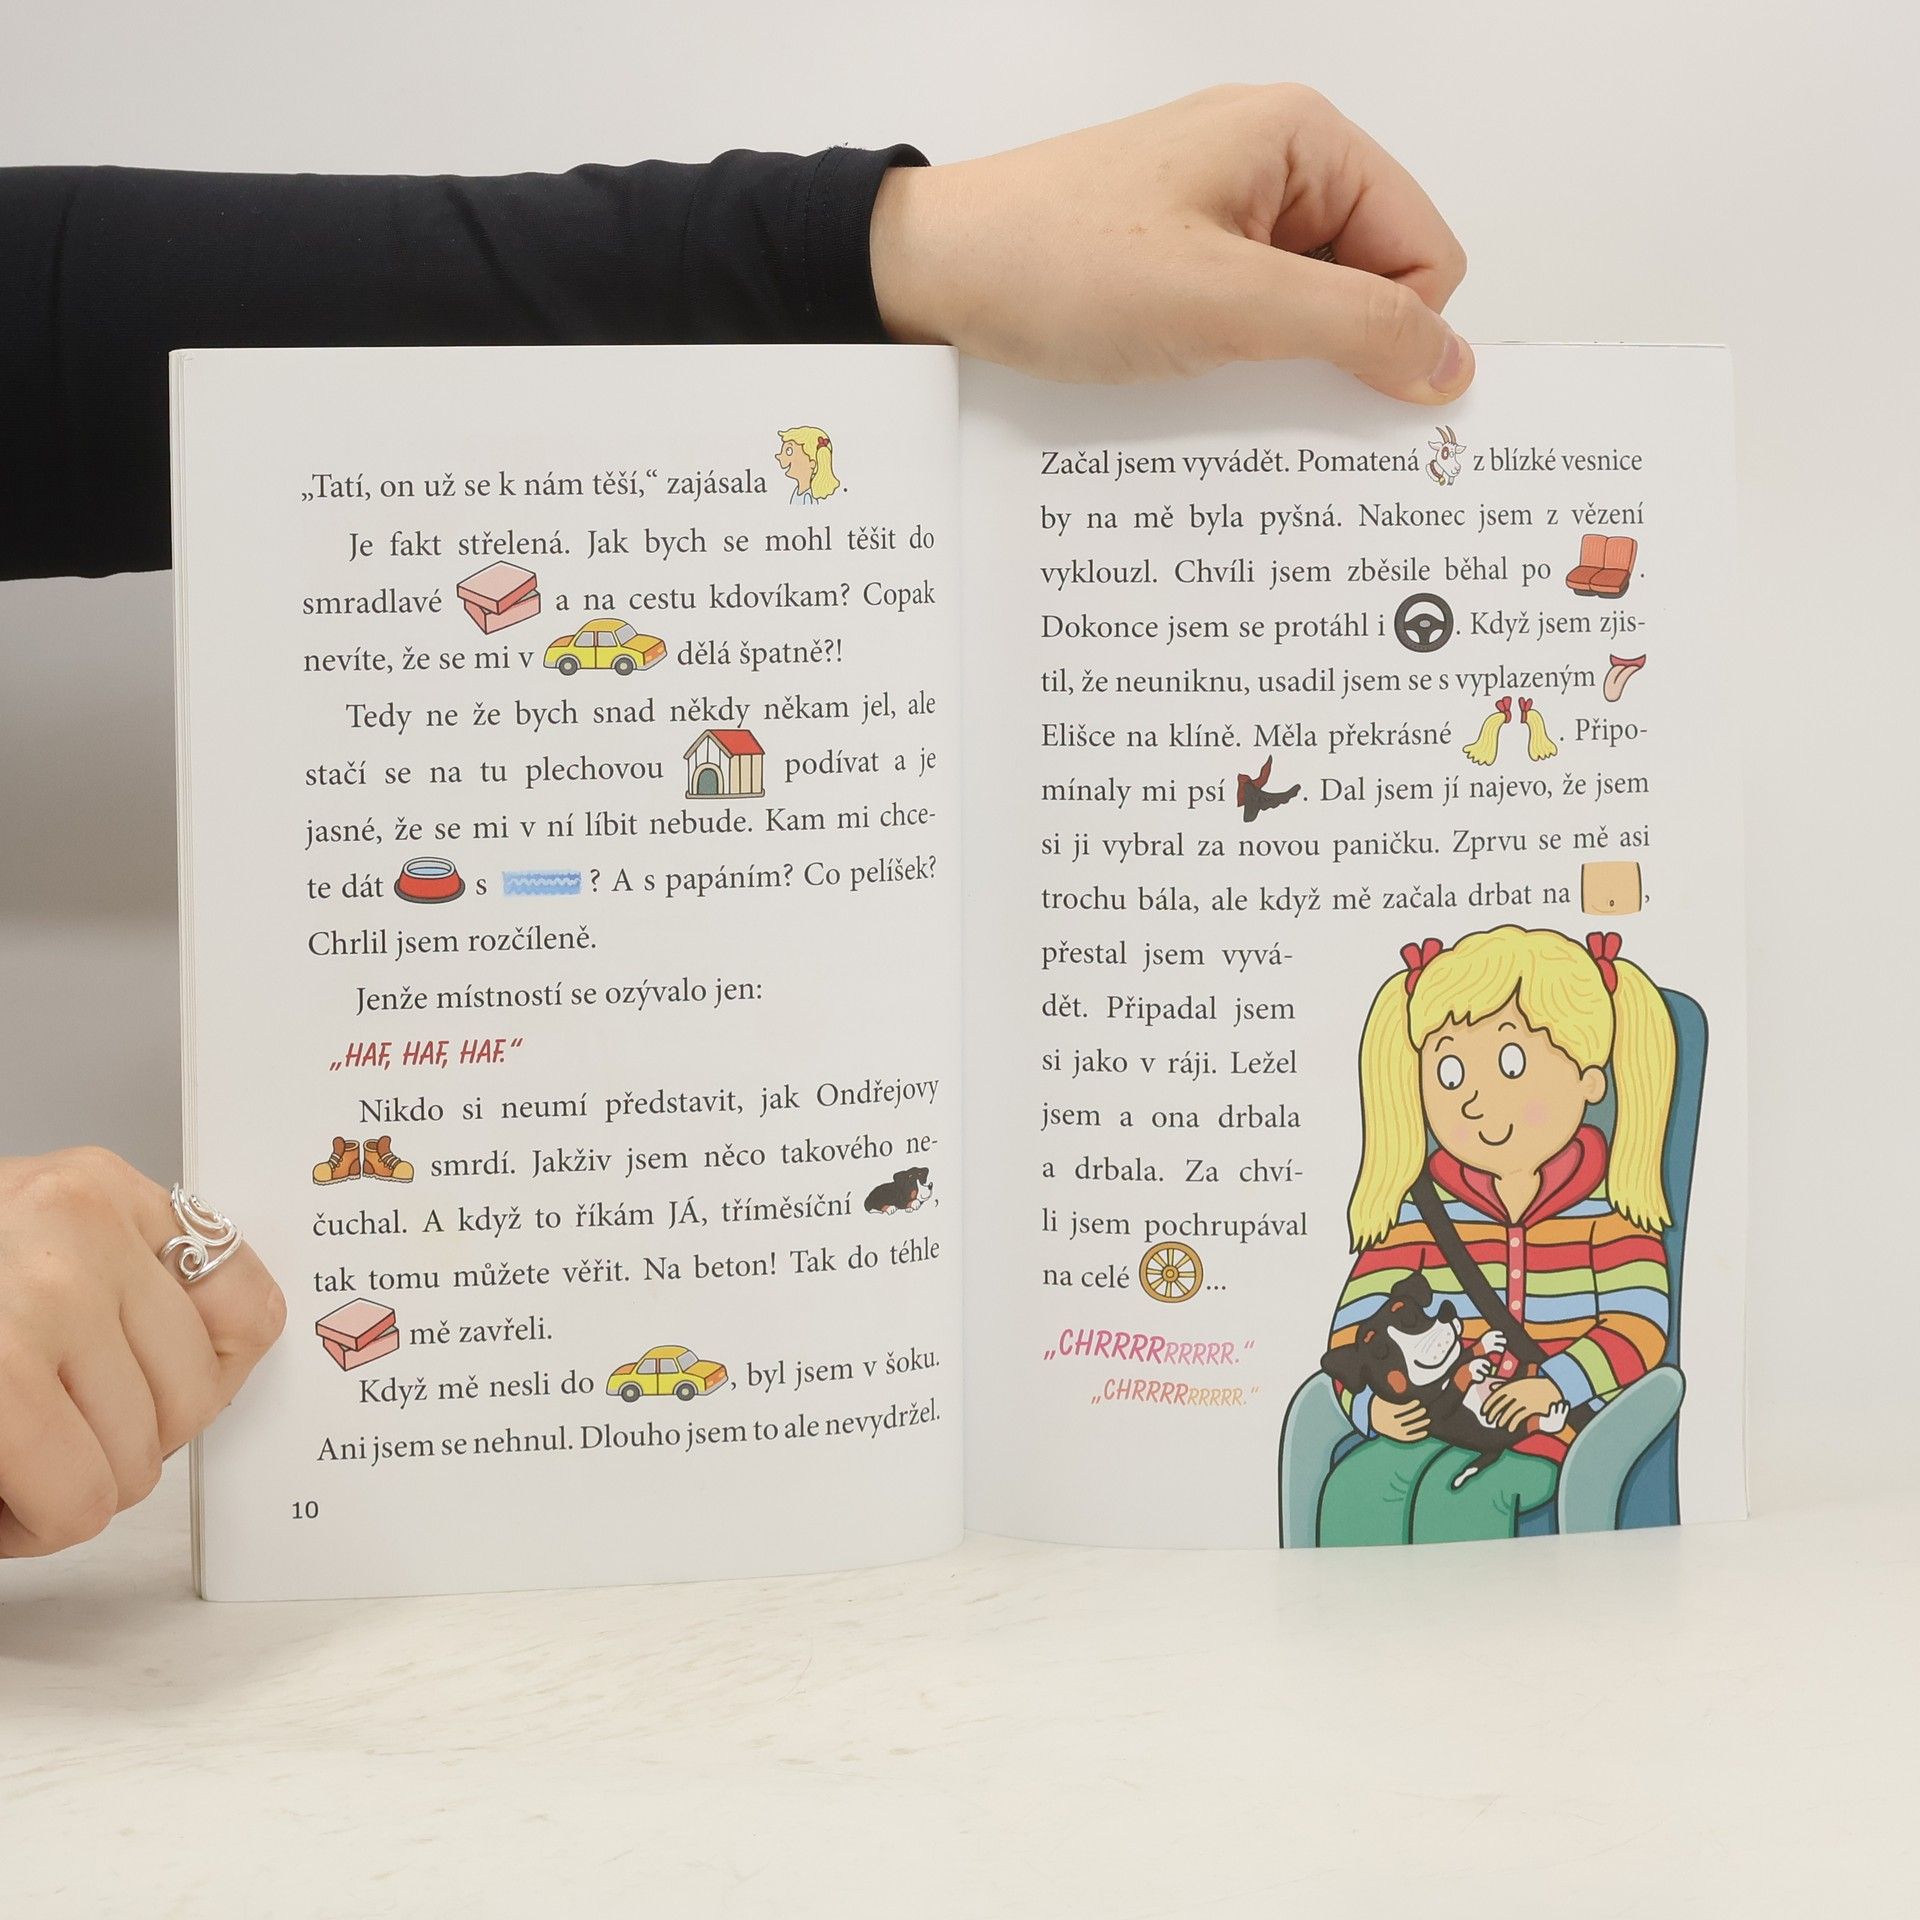 „Tatí, on už se k nám těší,“ zajásala .
Je fakt střelená. Jak bych se mohl těšit do
smradlavé a na cestu kdovíkam? Copak
nevíte, že se mi v dělá špatně?!
Tedy ne že bych snad někdy někam jel, ale
stačí se na tu plechovou podívat a je
jasné, že se mi v ní líbit nebude. Kam mi chce-
te dát s ? A s papáním? Co pelíšek?
Chrlil jsem rozčíleně.
Jenže místností se ozývalo jen:
„HAF, HAF, HAF.“
Nikdo si neumí představit, jak Ondřejovy
smrdí. Jakživ jsem něco takového ne-
čuchal. A když to říkám JÁ, tříměsíční ,
tak tomu můžete věřit. Na beton! Tak do téhle
mě zavřeli.
Když mě nesli do , byl jsem v šoku.
Ani jsem se nehnul. Dlouho jsem to ale nevydržel.
10
Začal jsem vyvádět. Pomatená z blízké vesnice
by na mě byla pyšná. Nakonec jsem z vězení
vyklouzl. Chvíli jsem zběsile běhal po .
Dokonce jsem se protáhl i . Když jsem zjis-
til, že neuniknu, usadil jsem se s vyplazeným
Elišce na klíně. Měla překrásné . Připo-
mínaly mi psí . Dal jsem jí najevo, že jsem
si ji vybral za novou paničku. Zprvu se mě asi
trochu bála, ale když mě začala drbat na ,
přestal jsem vyvá-
dět. Připadal jsem
si jako v ráji. Ležel
jsem a ona drbala
a drbala. Za chví-
li jsem pochrupával
na celé ...
„CHRRRRRRRRR.“
„CHRRRRRRRRR.“